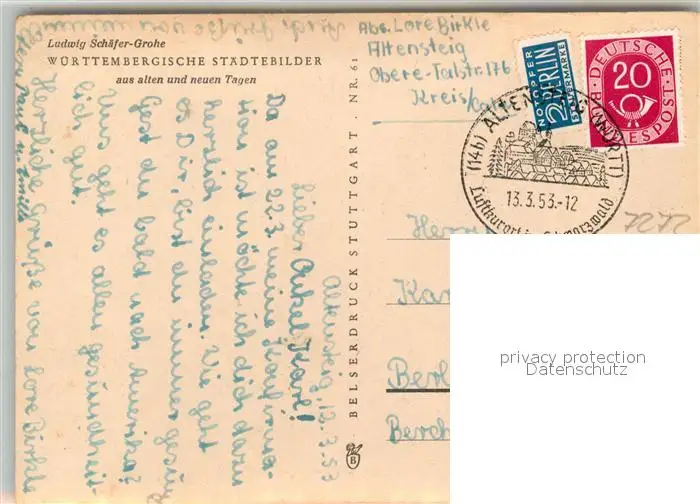 Ludwig Schäfer-Grohe
WÜRTTEMBERGISCHE STÄDTEBILDER
aus alten und neuen Tagen
Altensteig, 12.3.53
Lieber Onkel Karl!
Da am 22.3 meine Konfirma-
tion ist möchte ich dich dazu
herzlich einladen. Wie geht
es Dir, bist du immer gesund
Gest du bald nach Amerika?
Uns geht es allen gesundheit-
lich gut.
Herzliche Grüße von Lore Birkle
BELSERDRUCK STUTTGART · NR. 61
B
Abs. Lore Birkle
Altensteig
Obere-Talstr. 176
Kreis/Calw
NOTOPFER
2 BERLIN
STEUERMARKE
DEUTSCHE
20
BUNDESPOST
(14b) ALTENSTEIG (WÜRTT)
13.3.53.-12
Luftkurort im Schwarzwald
Herrn
Kar
Berl
Berch
privacy protection
Datenschutz